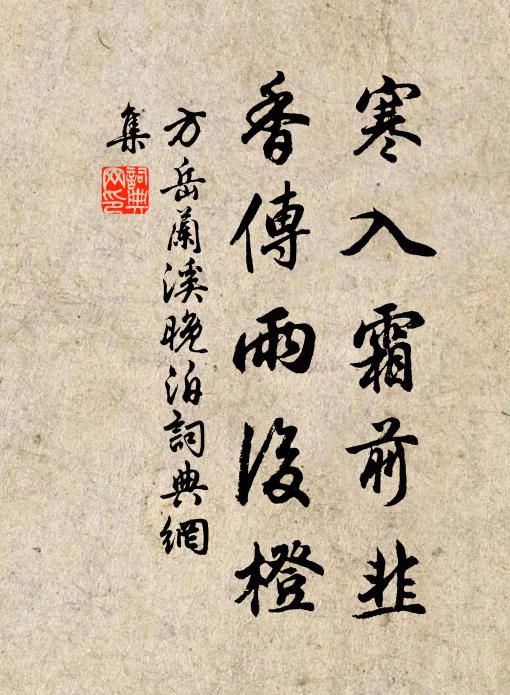 寒入霜前韭
香傳雨後橙
方岳蘭溪晚泊詞典網
集
詞典網印